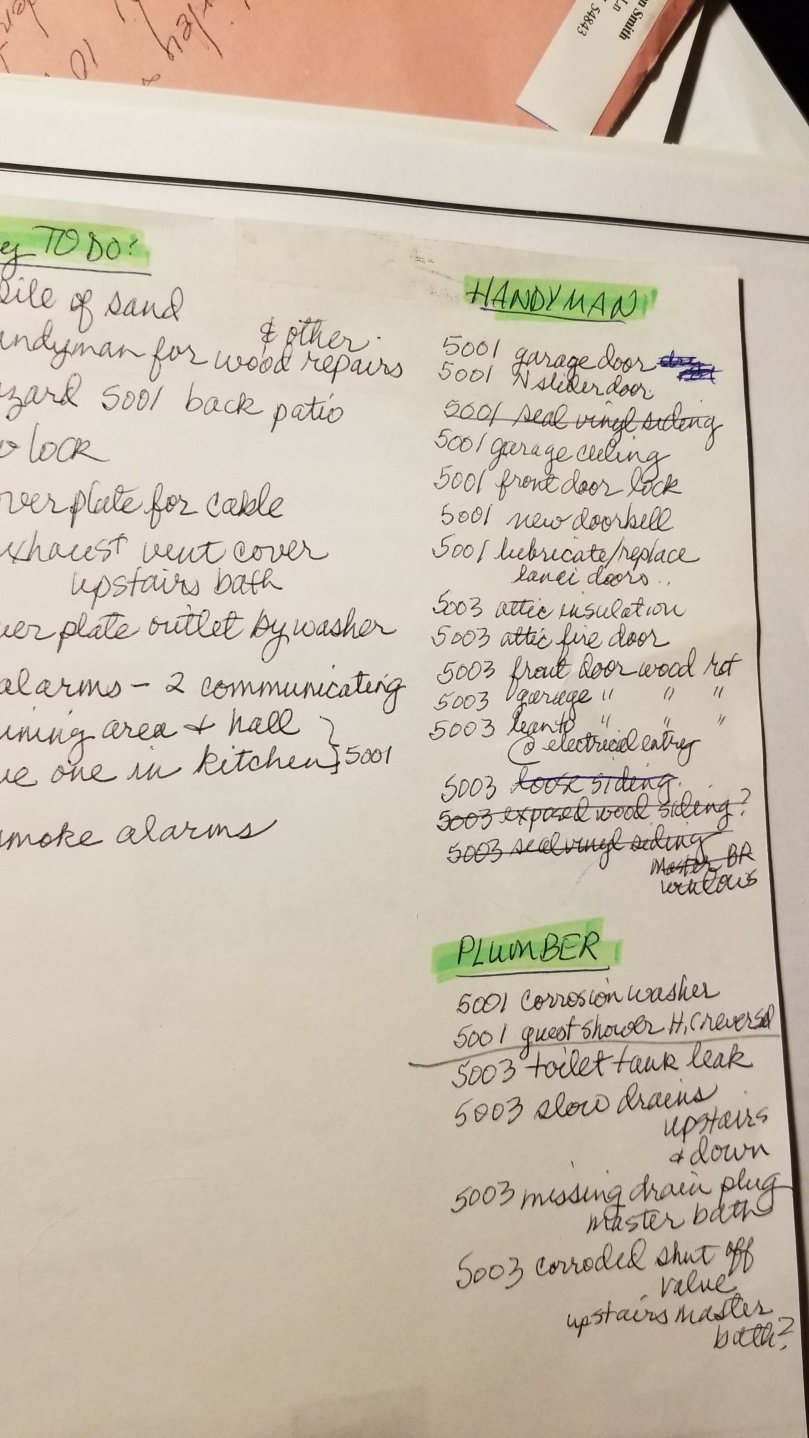 n Smith
Ln
54843
10
y TO DO:
pile of sand
& other
andyman for wood repairs
zard 5001 back patio
lock
over plate for cable
exhaust vent cover
upstairs bath
ver plate outlet by washer
alarms - 2 communicating
ining area & hall
ve one in kitchen] 5001
smoke alarms
HANDYMAN
5001 garage door
5001 N slider door
5001 seal vinyl siding
5001 garage ceiling
5001 front door lock
5001 new doorbell
5001 lubricate/replace
lanei doors..
5003 attic insulation
5003 attic fire door
5003 front door wood rot
5003 garage " " "
5003 leanto " " "
@ electrical entry
5003 loose siding
5003 exposed wood siding?
5003 seal vinyl siding
Master BR
windows
PLUMBER
5001 corrosion washer
5001 guest shower H,C reversed
5003 toilet tank leak
5003 slow drains
upstairs
& down
5003 missing drain plug
master bath
5003 corroded shut off
value
upstairs master
bath?